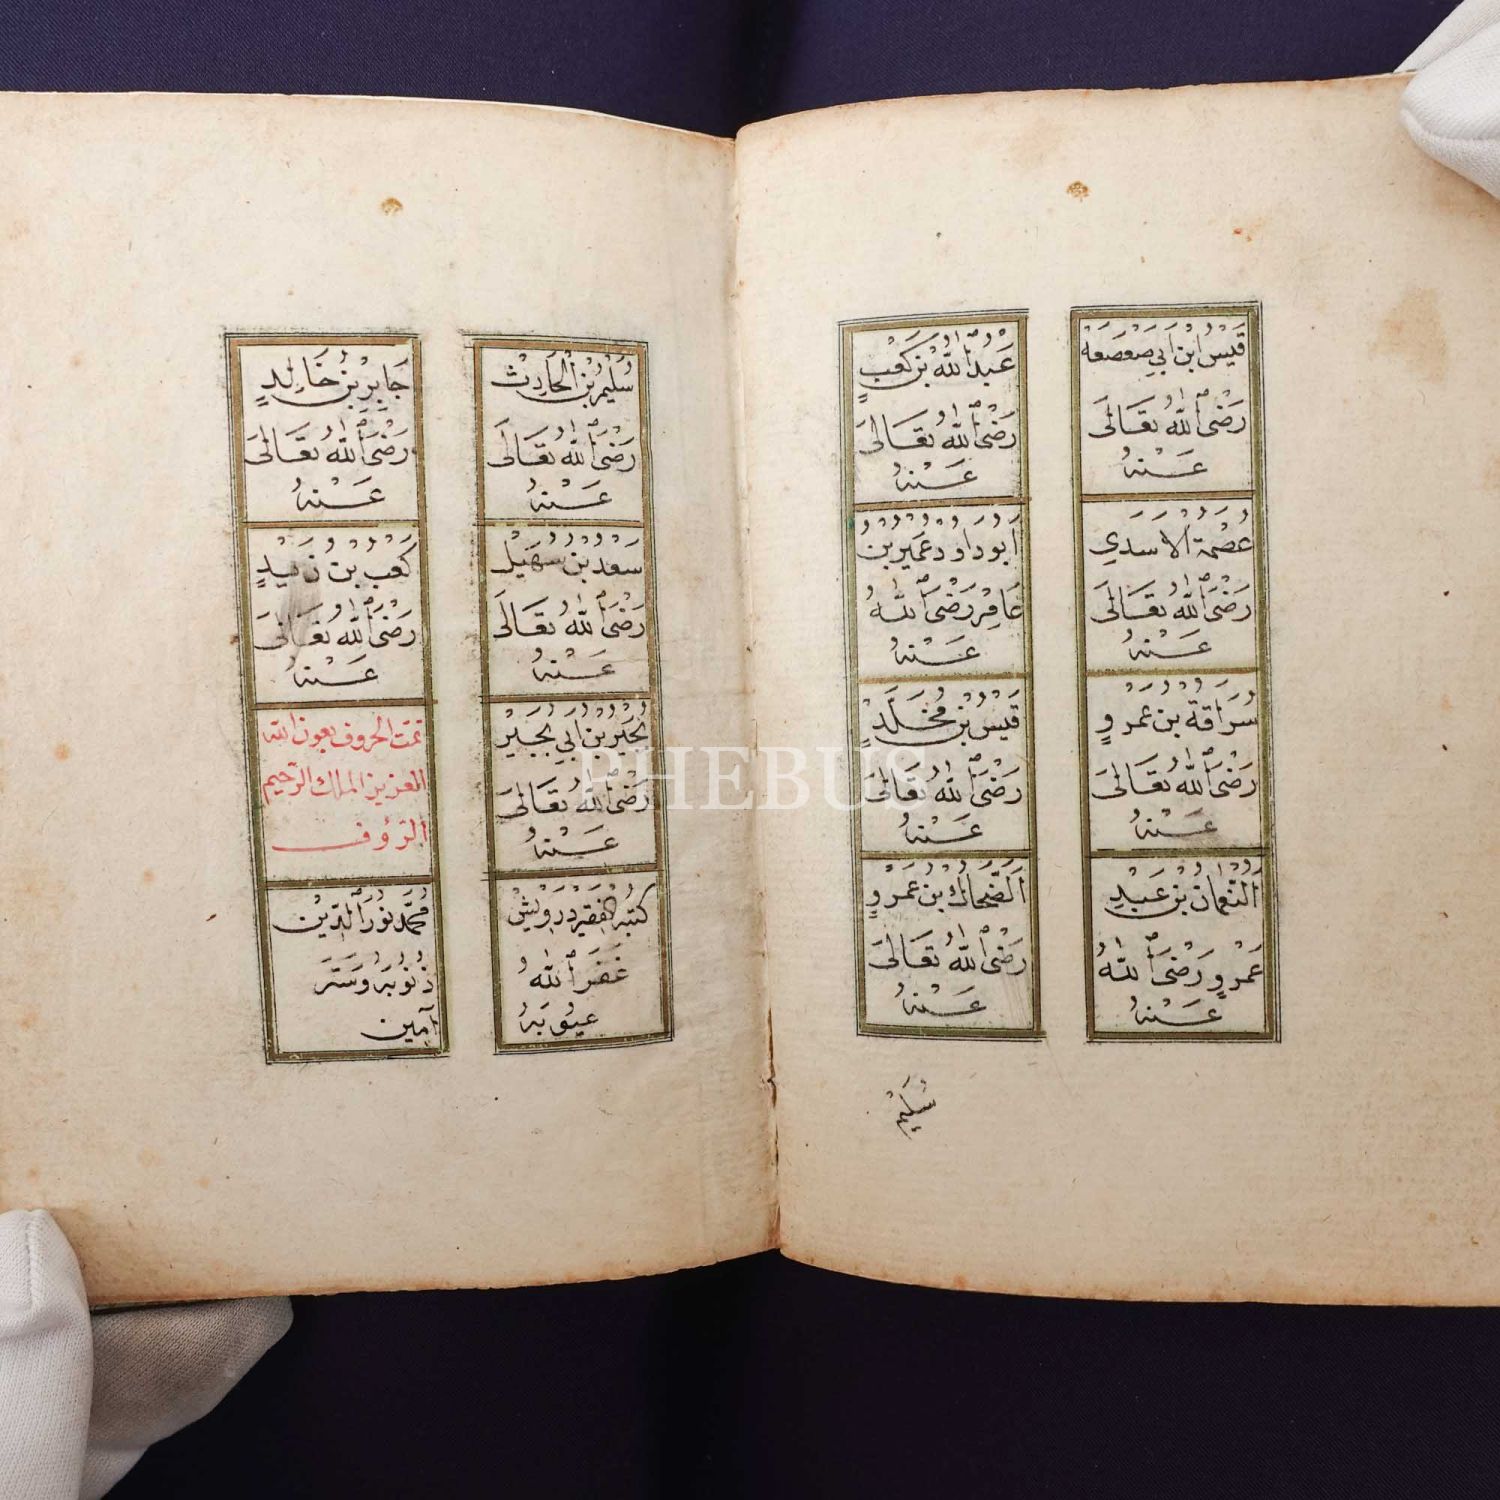 قَيْسُ ابْنُ اَبِي صَعْصَعَةَ
رَضِىَ اللّٰهُ تَعَالٰى
عَنْهُ
عُصْمَةُ الْاَسَدِي
رَضِىَ اللّٰهُ تَعَالٰى
عَنْهُ
سُرَاقَةُ بْنُ عَمْروٍ
رَضِىَ اللّٰهُ تَعَالٰى
عَنْهُ
اَلنُّعْمَانُ بْنُ عَبْدِ
عَمْروٍ رَضِىَ اللّٰهُ
عَنْهُ
عَبْدُ اللّٰهِ بْنُ كَعْبٍ
رَضِىَ اللّٰهُ تَعَالٰى
عَنْهُ
اَبُو دَاوُدَ عُمَيْرُ بْنُ
عَامِرٍ رَضِىَ اللّٰهُ
عَنْهُ
قَيْسُ بْنُ مُخَلَّدٍ
رَضِىَ اللّٰهُ تَعَالٰى
عَنْهُ
اَلضَّحَّاكُ بْنُ عَمْروٍ
رَضِىَ اللّٰهُ تَعَالٰى
عَنْهُ
سُلَيْمُ
سُلَيْمُ بْنُ الْحَارِثِ
رَضِىَ اللّٰهُ تَعَالٰى
عَنْهُ
سَعْدُ بْنُ سُهَيْلٍ
رَضِىَ اللّٰهُ تَعَالٰى
عَنْهُ
بُجَيْرُ بْنُ اَبِي بُجَيْرٍ
رَضِىَ اللّٰهُ تَعَالٰى
عَنْهُ
كتبه الفقير درويش
جَابِرُ بْنُ خَالِدٍ
رَضِىَ اللّٰهُ تَعَالٰى
عَنْهُ
كَعْبُ بْنُ زَيْدٍ
رَضِىَ اللّٰهُ تَعَالٰى
عَنْهُ
تمت الحروف بعون الله
العزيز الملك الرحيم
الرؤف
مُحَمَّد نُورُ الدِّين
غَفَرَ اللّٰهُ
ذُنُوبَهُ وَسَتَرَ
عُيُوبَهُ
آمين
PHEBUS